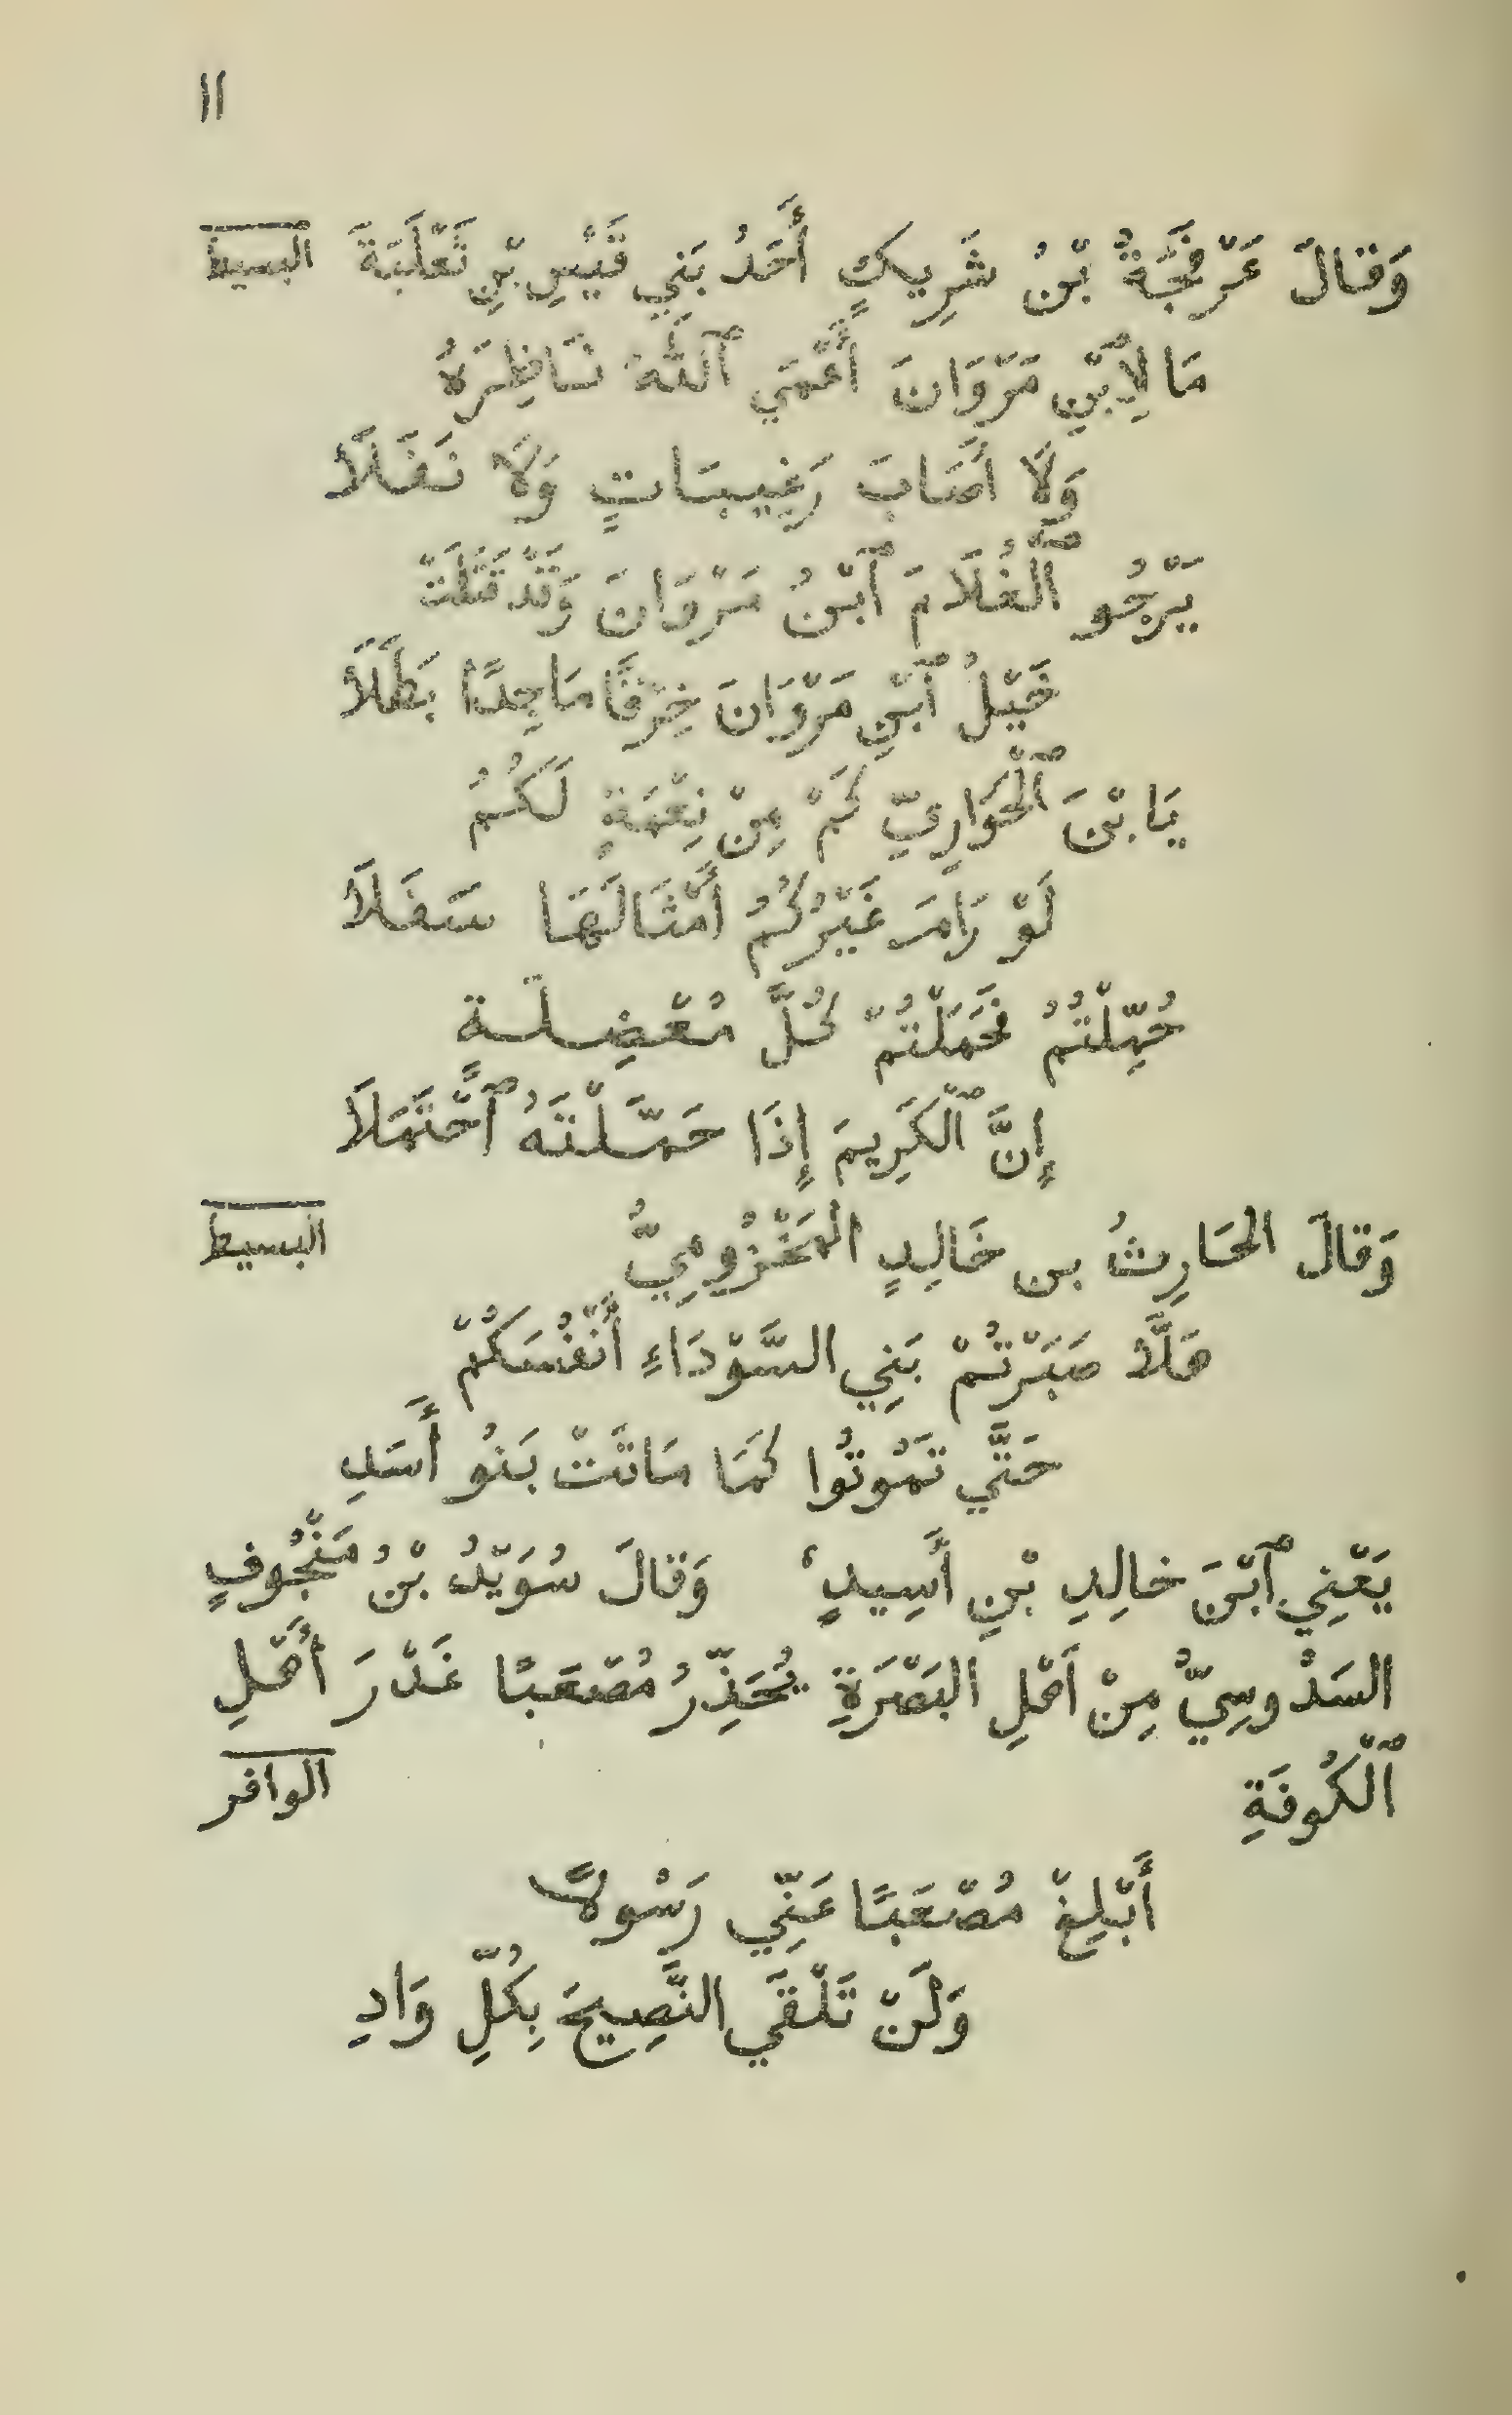 ١١
وَقَالَ عَرْفَجَةُ بْنُ شَرِيكٍ أَحَدُ بَنِي قَيْسِ بْنِ ثَعْلَبَةَ البسيط
مَا لِٱبْنِ مَرْوَانَ أَعْمَي ٱللَّهُ نَاظِرَهُ
وَلَا أَصَابَ رَغِيبَاتٍ وَلَا نَفَلَا
يَرْجُو ٱلْغُلَامَ ٱبْنُ مَرْوَانَ وَقَدْ قَتَلَتْ
خَيْلُ ٱبْنِ مَرْوَانَ خِرْقًا مَاجِدًا بَطَلَا
يَا بْنَ ٱلْحَوَارِيِّ كَمْ مِنْ نِعْمَةٍ لَكُمُ
لَوْ رَامَ غَيْرُكُمُ أَمْثَالَهَا سَفَلَا
حُمِّلْتُمُ فَحَمَلْتُمْ كُلَّ مُعْضِلَة
إِنَّ ٱلْكَرِيمَ إِذَا حَمَّلْتَهُ ٱحْتَمَلَا
وَقَالَ الحَارِثُ بن خَالِدٍ المَخْزُومِيُّ البسيط
هَلَّا صَبَرْتُمْ بَنِي السَّوْدَاءِ أَنْفُسَكُمْ
حَتَّي تَمُوتُوا كَمَا مَاتَتْ بَنُو أَسَدِ
يَعْنِي ٱبْنَ خالِدِ بْنِ أَسِيدٍ، وَقالَ سُوَيْدُ بْنُ مَنْجُوفٍ
السَدُوسِيُّ مِنْ اَهْلِ البَصْرَةِ يُحَذِّرُ مُصْعَبًا غَدْرَ أَهْلِ
ٱلْكُوفَةِ الوافر
أَبْلِغْ مُصْعَبًا عَنِّي رَسُولًا
وَلَنْ تَلْقَي النَّصِيحَ بِكُلِّ وَادِ